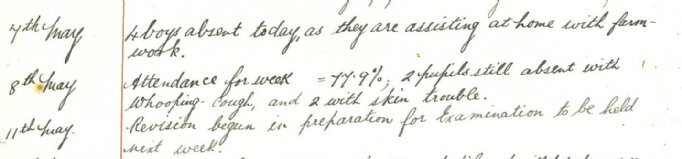 7th May 4 boys absent today, as they are assisting at home with farm-
work.
8th May Attendance for week = 77.9%; 2 pupils still absent with
whooping-cough, and 2 with skin trouble.
11th May. Revision begun in preparation for Examination to be held
next week.